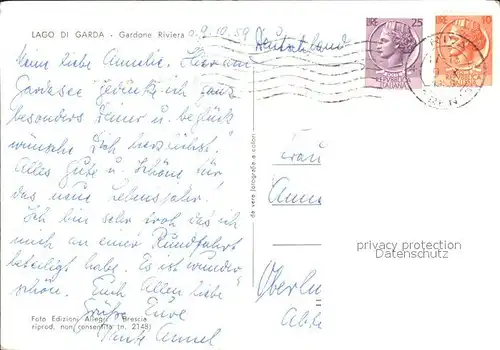 LAGO DI GARDA - Gardone Riviera
9.10.59
Deutschland
LIRE 25
LIRE 10
REPUBBLICA
ITALIANA
Meine liebe Annelie. Hier am
Gardasee gedenke ich ganz
besonders Deiner u. beglück
wünsche Dich herzlichst.
Alles Gute u. Schöne für
das neue Lebensjahr!
Ich bin sehr froh das ich
mich an einer Rundfahrt
beteiligt habe. Es ist wunder
schöne. Euch Allen liebe
Grüße Eure
Tante Annel
Frau
Anne
Oberlu
da vera fotografia a colori
privacy protection
Datenschutz
Foto Edizioni Allegri - Brescia
riprod. non consentita (n. 2148)